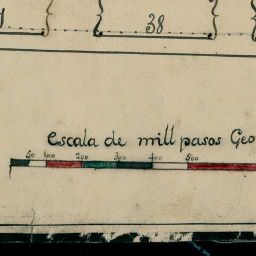 38
Escala de mill pasos Geo
50 100 200 300 400 500